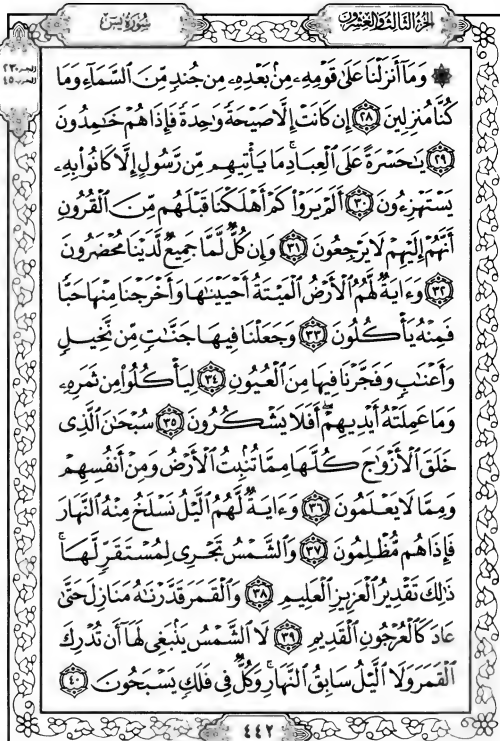 سُورَةُ يسٓ
الجزء الثالث والعشرون
الجزء ٢٣
الحزب ٤٥
۞ وَمَآ أَنزَلْنَا عَلَىٰ قَوْمِهِۦ مِنۢ بَعْدِهِۦ مِن جُندٍ مِّنَ ٱلسَّمَآءِ وَمَا
كُنَّا مُنزِلِينَ ٢٨ إِن كَانَتْ إِلَّا صَيْحَةً وَٰحِدَةً فَإِذَا هُمْ خَٰمِدُونَ
٢٩ يَٰحَسْرَةً عَلَى ٱلْعِبَادِ ۚ مَا يَأْتِيهِم مِّن رَّسُولٍ إِلَّا كَانُوا۟ بِهِۦ
يَسْتَهْزِءُونَ ٣٠ أَلَمْ يَرَوْا۟ كَمْ أَهْلَكْنَا قَبْلَهُم مِّنَ ٱلْقُرُونِ
أَنَّهُمْ إِلَيْهِمْ لَا يَرْجِعُونَ ٣١ وَإِن كُلٌّ لَّمَّا جَمِيعٌ لَّدَيْنَا مُحْضَرُونَ
٣٢ وَءَايَةٌ لَّهُمُ ٱلْأَرْضُ ٱلْمَيْتَةُ أَحْيَيْنَٰهَا وَأَخْرَجْنَا مِنْهَا حَبًّا
فَمِنْهُ يَأْكُلُونَ ٣٣ وَجَعَلْنَا فِيهَا جَنَّٰتٍ مِّن نَّخِيلٍ
وَأَعْنَٰبٍ وَفَجَّرْنَا فِيهَا مِنَ ٱلْعُيُونِ ٣٤ لِيَأْكُلُوا۟ مِن ثَمَرِهِۦ
وَمَا عَمِلَتْهُ أَيْدِيهِمْ ۖ أَفَلَا يَشْكُرُونَ ٣٥ سُبْحَٰنَ ٱلَّذِى
خَلَقَ ٱلْأَزْوَٰجَ كُلَّهَا مِمَّا تُنۢبِتُ ٱلْأَرْضُ وَمِنْ أَنفُسِهِمْ
وَمِمَّا لَا يَعْلَمُونَ ٣٦ وَءَايَةٌ لَّهُمُ ٱلَّيْلُ نَسْلَخُ مِنْهُ ٱلنَّهَارَ
فَإِذَا هُم مُّظْلِمُونَ ٣٧ وَٱلشَّمْسُ تَجْرِى لِمُسْتَقَرٍّ لَّهَا ۚ
ذَٰلِكَ تَقْدِيرُ ٱلْعَزِيزِ ٱلْعَلِيمِ ٣٨ وَٱلْقَمَرَ قَدَّرْنَٰهُ مَنَازِلَ حَتَّىٰ
عَادَ كَٱلْعُرْجُونِ ٱلْقَدِيمِ ٣٩ لَا ٱلشَّمْسُ يَنۢبَغِى لَهَآ أَن تُدْرِكَ
ٱلْقَمَرَ وَلَا ٱلَّيْلُ سَابِقُ ٱلنَّهَارِ ۚ وَكُلٌّ فِى فَلَكٍ يَسْبَحُونَ ٤٠
٤٤٢